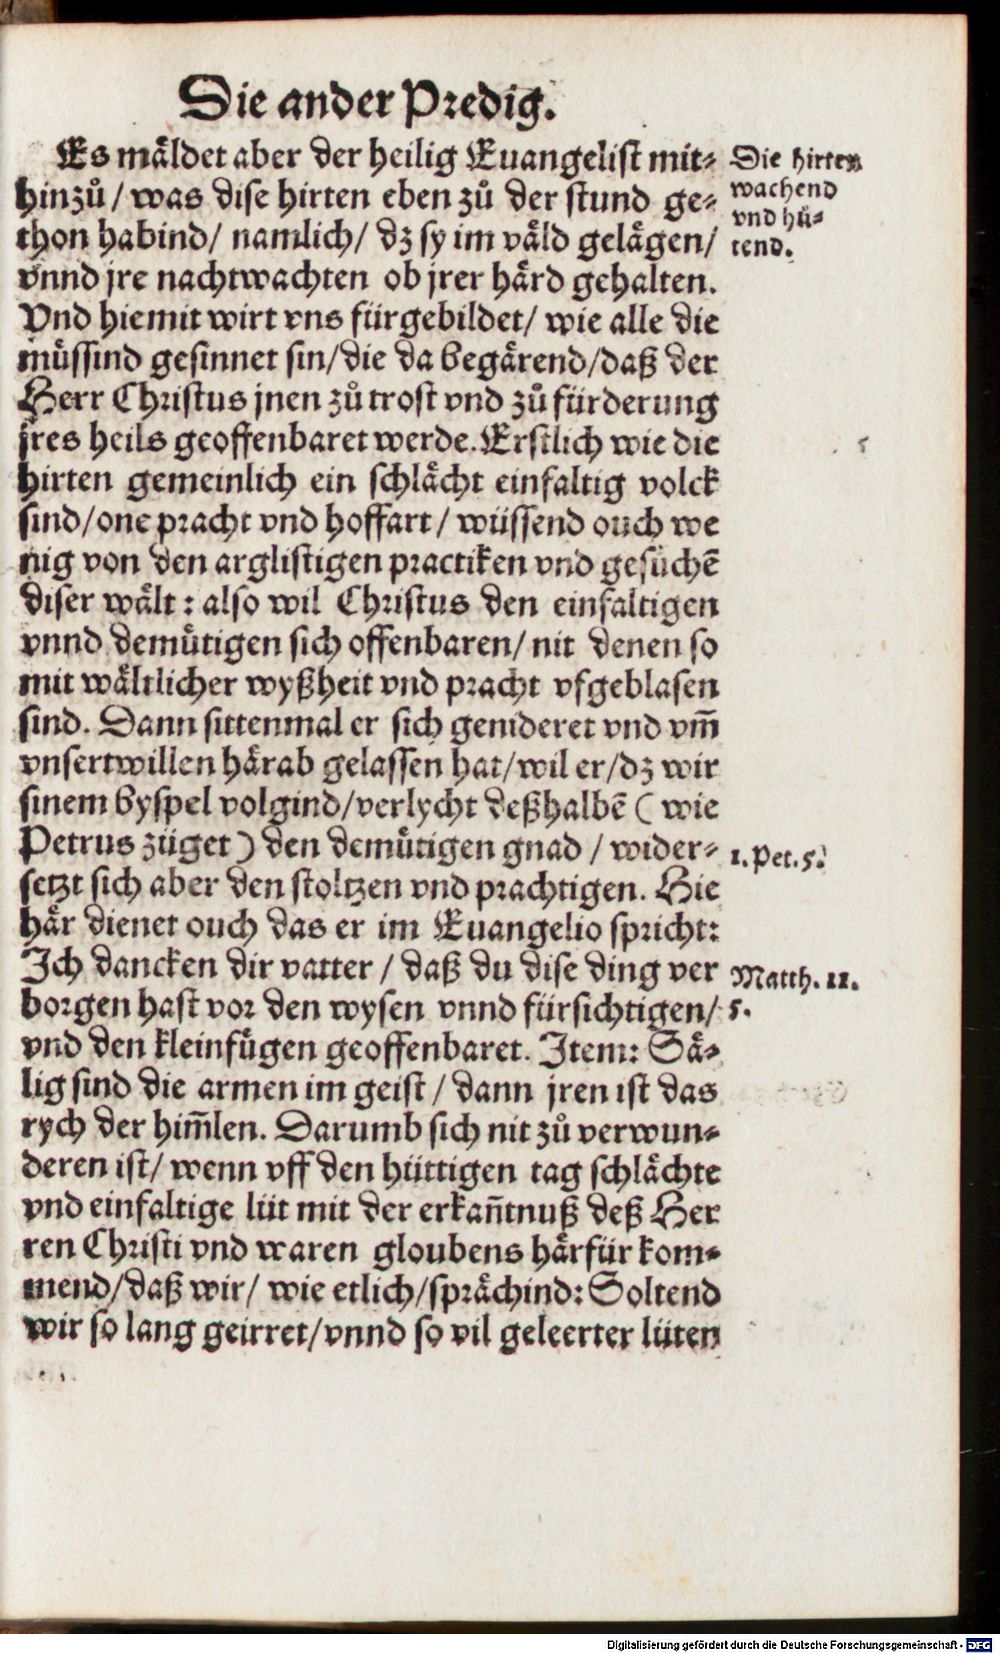 Die ander Predig.
Es mäldet aber der heilig Euangelist mit⸗
hinzů / was dise hirten eben zů der stund ge⸗
thon habind / namlich / dz sy im väld gelägen /
vnnd jre nachtwachten ob jrer härd gehalten.
Vnd hiemit wirt vns fürgebildet / wie alle die
müssind gesinnet sin / die da begärend / daß der
Herr Christus jnen zů trost vnd zů fürderung
jres heils geoffenbaret werde. Erstlich wie die
hirten gemeinlich ein schlächt einfaltig volck
sind / one pracht vnd hoffart / wüssend ouch we
nig von den arglistigen practiken vnd gesüchē
diser wält : also wil Christus den einfaltigen
vnnd demütigen sich offenbaren / nit denen so
mit wältlicher wyßheit vnd pracht vfgeblasen
sind. Dann sittenmal er sich genideret vnd vm̄
vnsertwillen härab gelassen hat / wil er / dz wir
sinem byspel volgind / verlycht deßhalbē ( wie
Petrus züget ) den demütigen gnad / wider⸗
setzt sich aber den stoltzen vnd prachtigen. Hie
här dienet ouch das er im Euangelio spricht:
Ich dancken dir vatter / daß du dise ding ver
borgen hast vor den wysen vnnd fürsichtigen /
vnd den kleinfügen geoffenbaret. Item: Sä⸗
lig sind die armen im geist / dann jren ist das
rych der him̄len. Darumb sich nit zů verwun⸗
deren ist / wenn vff den hüttigen tag schlächte
vnd einfaltige lüt mit der erkan̄tnuß deß Her
ren Christi vnd waren gloubens härfür kom⸗
mend / daß wir / wie etlich / sprächind: Soltend
wir so lang geirret / vnnd so vil geleerter lüten
Die hirten
wachend
vnd hü⸗
tend.
1. Pet. 5.
Matth. 11.
5.
Digitalisierung gefördert durch die Deutsche Forschungsgemeinschaft - DFG